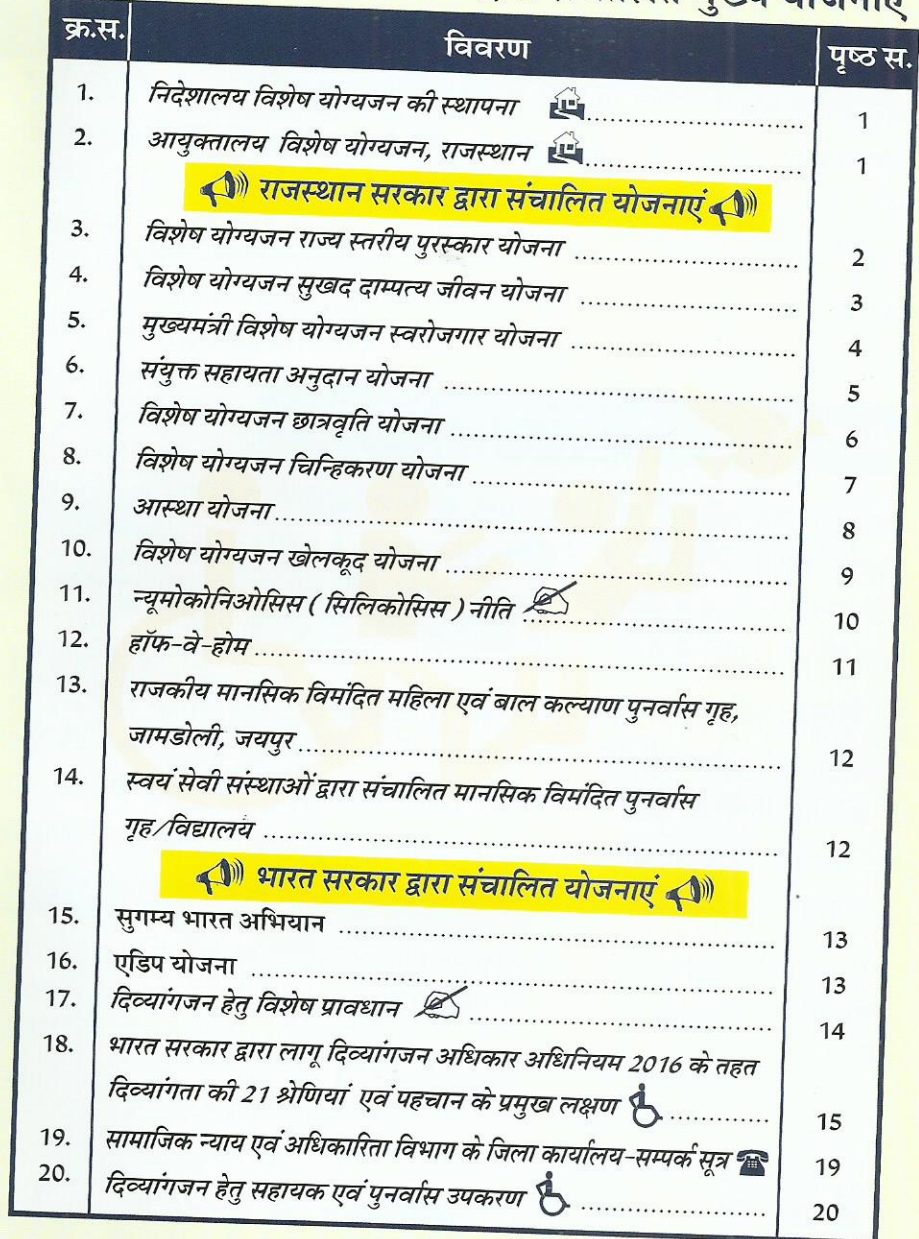 मुख्य योजनाएं
क्र.स. विवरण पृष्ठ स.
1. निदेशालय विशेष योग्यजन की स्थापना 1
2. आयुक्तालय विशेष योग्यजन, राजस्थान 1
राजस्थान सरकार द्वारा संचालित योजनाएं
3. विशेष योग्यजन राज्य स्तरीय पुरस्कार योजना 2
4. विशेष योग्यजन सुखद दाम्पत्य जीवन योजना 3
5. मुख्यमंत्री विशेष योग्यजन स्वरोजगार योजना 4
6. संयुक्त सहायता अनुदान योजना 5
7. विशेष योग्यजन छात्रवृति योजना 6
8. विशेष योग्यजन चिन्हिकरण योजना 7
9. आस्था योजना 8
10. विशेष योग्यजन खेलकूद योजना 9
11. न्यूमोकोनिओसिस ( सिलिकोसिस ) नीति 10
12. हॉफ-वे-होम 11
13. राजकीय मानसिक विमंदित महिला एवं बाल कल्याण पुनर्वास गृह,
जामडोली, जयपुर 12
14. स्वयं सेवी संस्थाओं द्वारा संचालित मानसिक विमंदित पुनर्वास
गृह/विद्यालय 12
भारत सरकार द्वारा संचालित योजनाएं
15. सुगम्य भारत अभियान 13
16. एडिप योजना 13
17. दिव्यांगजन हेतु विशेष प्रावधान 14
18. भारत सरकार द्वारा लागू दिव्यांगजन अधिकार अधिनियम 2016 के तहत
दिव्यांगता की 21 श्रेणियां एवं पहचान के प्रमुख लक्षण 15
19. सामाजिक न्याय एवं अधिकारिता विभाग के जिला कार्यालय-सम्पर्क सूत्र 19
20. दिव्यांगजन हेतु सहायक एवं पुनर्वास उपकरण 20